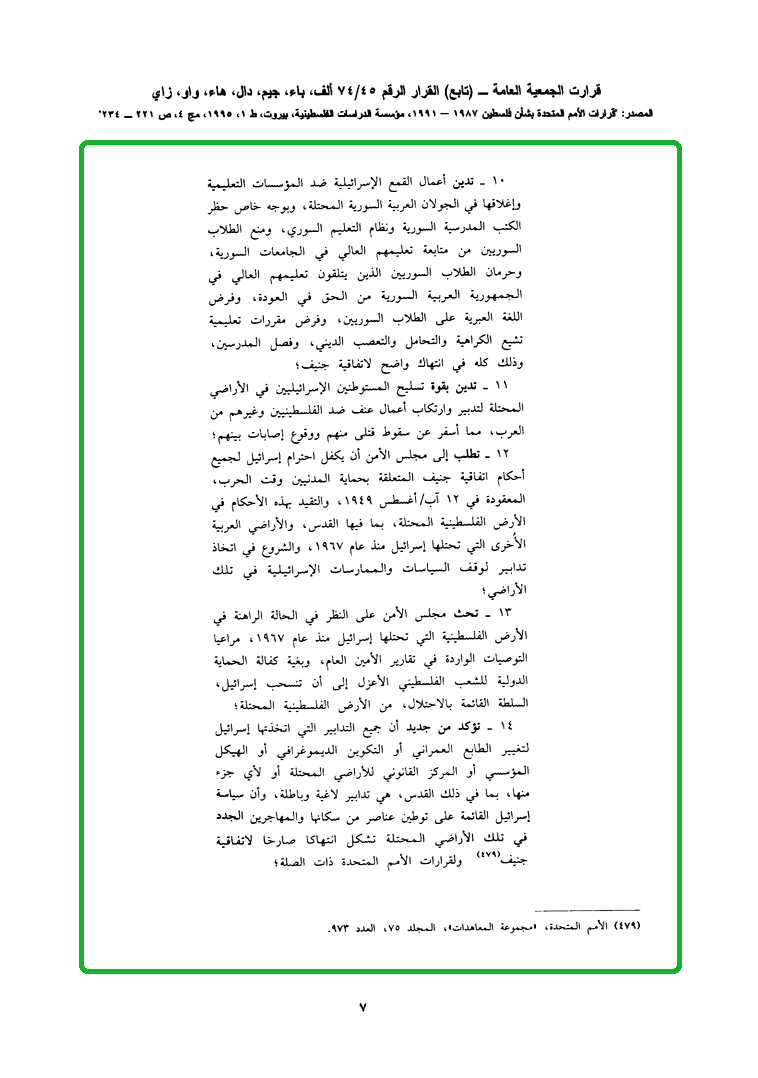 قرارت الجمعية العامة ــ (تابع) القرار الرقم ٧٤/٤٥ ألف، باء، جيم، دال، هاء، واو، زاي
المصدر: "قرارات الأمم المتحدة بشأن فلسطين ١٩٨٧ – ١٩٩١، مؤسسة الدراسات الفلسطينية، بيروت، ط ١، ١٩٩٥، مج ٤، ص ٢٢١ ــ ٢٣٤"
١٠ ـ تدين أعمال القمع الإسرائيلية ضد المؤسسات التعليمية
وإغلاقها في الجولان العربية السورية المحتلة، وبوجه خاص حظر
الكتب المدرسية السورية ونظام التعليم السوري، ومنع الطلاب
السوريين من متابعة تعليمهم العالي في الجامعات السورية،
وحرمان الطلاب السوريين الذين يتلقون تعليمهم العالي في
الجمهورية العربية السورية من الحق في العودة، وفرض
اللغة العبرية على الطلاب السوريين، وفرض مقررات تعليمية
تشيع الكراهية والتحامل والتعصب الديني، وفصل المدرسين،
وذلك كله في انتهاك واضح لاتفاقية جنيف؛
١١ ـ تدين بقوة تسليح المستوطنين الإسرائيليين في الأراضي
المحتلة لتدبير وارتكاب أعمال عنف ضد الفلسطينيين وغيرهم من
العرب، مما أسفر عن سقوط قتلى منهم ووقوع إصابات بينهم؛
١٢ ـ تطلب إلى مجلس الأمن أن يكفل احترام إسرائيل لجميع
أحكام اتفاقية جنيف المتعلقة بحماية المدنيين وقت الحرب،
المعقودة في ١٢ آب/أغسطس ١٩٤٩، والتقيد بهذه الأحكام في
الأرض الفلسطينية المحتلة، بما فيها القدس، والأراضي العربية
الأُخرى التي تحتلها إسرائيل منذ عام ١٩٦٧، والشروع في اتخاذ
تدابير لوقف السياسات والممارسات الإسرائيلية في تلك
الأراضي؛
١٣ ـ تحث مجلس الأمن على النظر في الحالة الراهنة في
الأرض الفلسطينية التي تحتلها إسرائيل منذ عام ١٩٦٧، مراعيا
التوصيات الواردة في تقارير الأمين العام، وبغية كفالة الحماية
الدولية للشعب الفلسطيني الأعزل إلى أن تنسحب إسرائيل،
السلطة القائمة بالاحتلال، من الأرض الفلسطينية المحتلة؛
١٤ ـ تؤكد من جديد أن جميع التدابير التي اتخذتها إسرائيل
لتغيير الطابع العمراني أو التكوين الديموغرافي أو الهيكل
المؤسسي أو المركز القانوني للأراضي المحتلة أو لأي جزء
منها، بما في ذلك القدس، هي تدابير لاغية وباطلة، وأن سياسة
إسرائيل القائمة على توطين عناصر من سكانها والمهاجرين الجدد
في تلك الأراضي المحتلة تشكل انتهاكا صارخا لاتفاقية
جنيف(٤٧٩) ولقرارات الأمم المتحدة ذات الصلة؛
(٤٧٩) الأمم المتحدة، «مجموعة المعاهدات»، المجلد ٧٥، العدد ٩٧٣.
٧